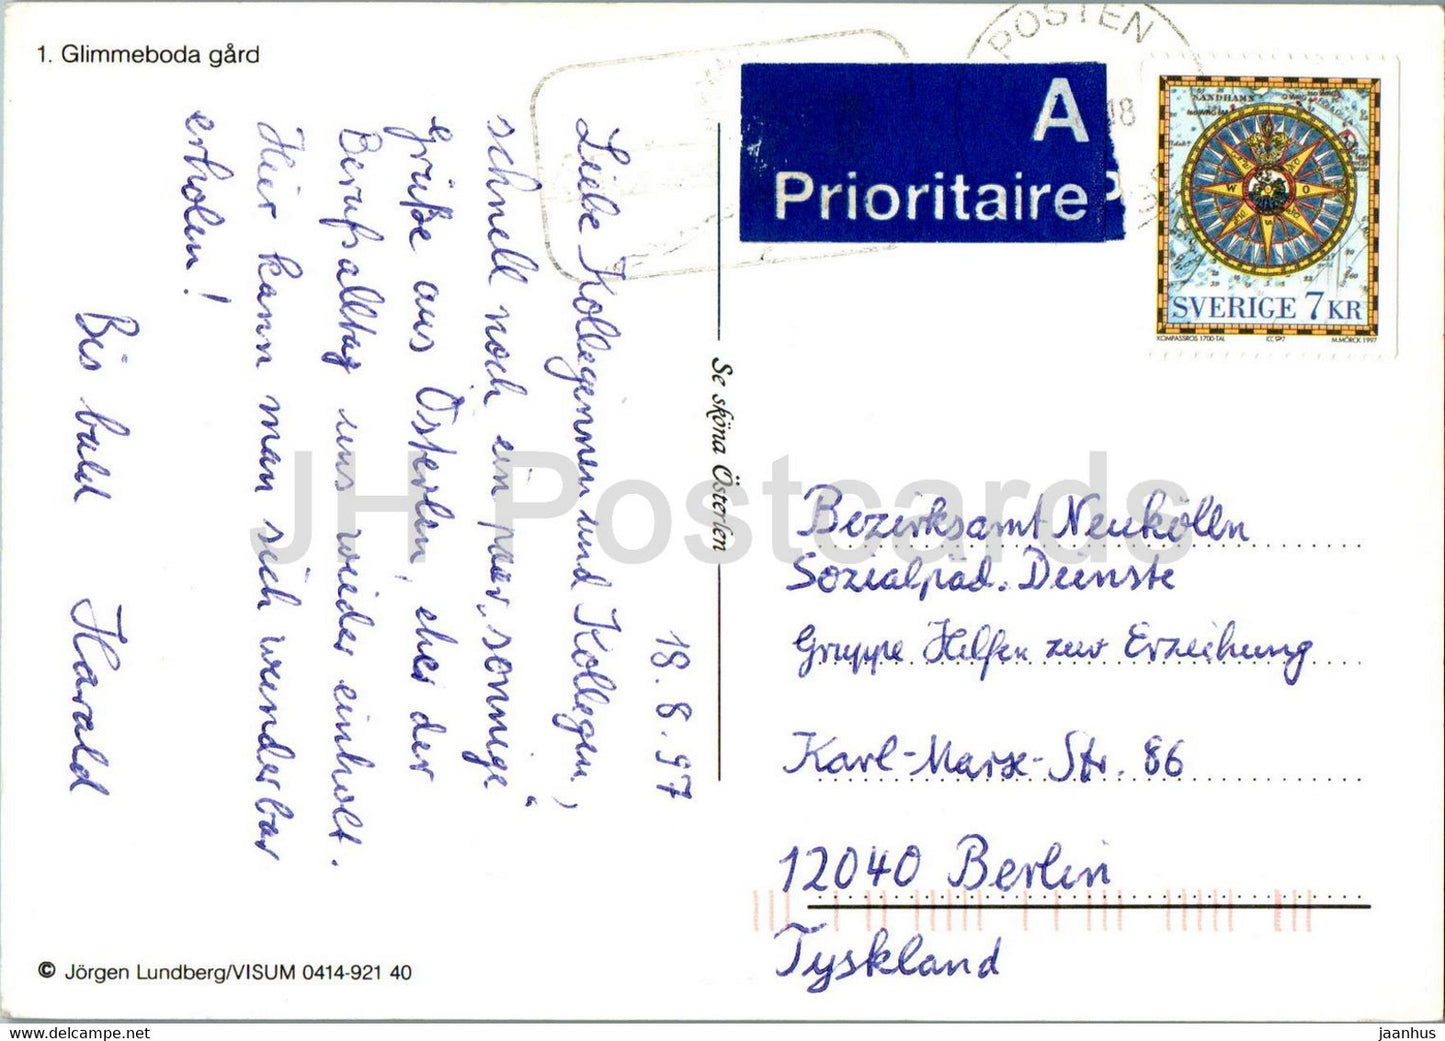 1. Glimmeboda gård
18.8.97
Liebe Kolleginnen und Kollegen,
schnell noch ein paar „sonnige“
Grüße aus Österlen, eher der
Berufsalltag uns wieder einholt.
Hier kann man sich wunderbar
erholen!
Bis bald Harald
© Jörgen Lundberg/VISUM 0414-921 40
Se sköna Österlen
POSTEN
18
A
Prioritaire
SANDHAMN
SVERIGE 7 KR
KOMPASSROS 1700-TAL
M.MÖRCK 1997
Bezirksamt Neukölln
Sozialpäd. Dienste
Gruppe Hilfen zur Erziehung
Karl-Marx-Str. 86
12040 Berlin
Tyskland
JH Postcards
jaanhus © www.delcampe.net